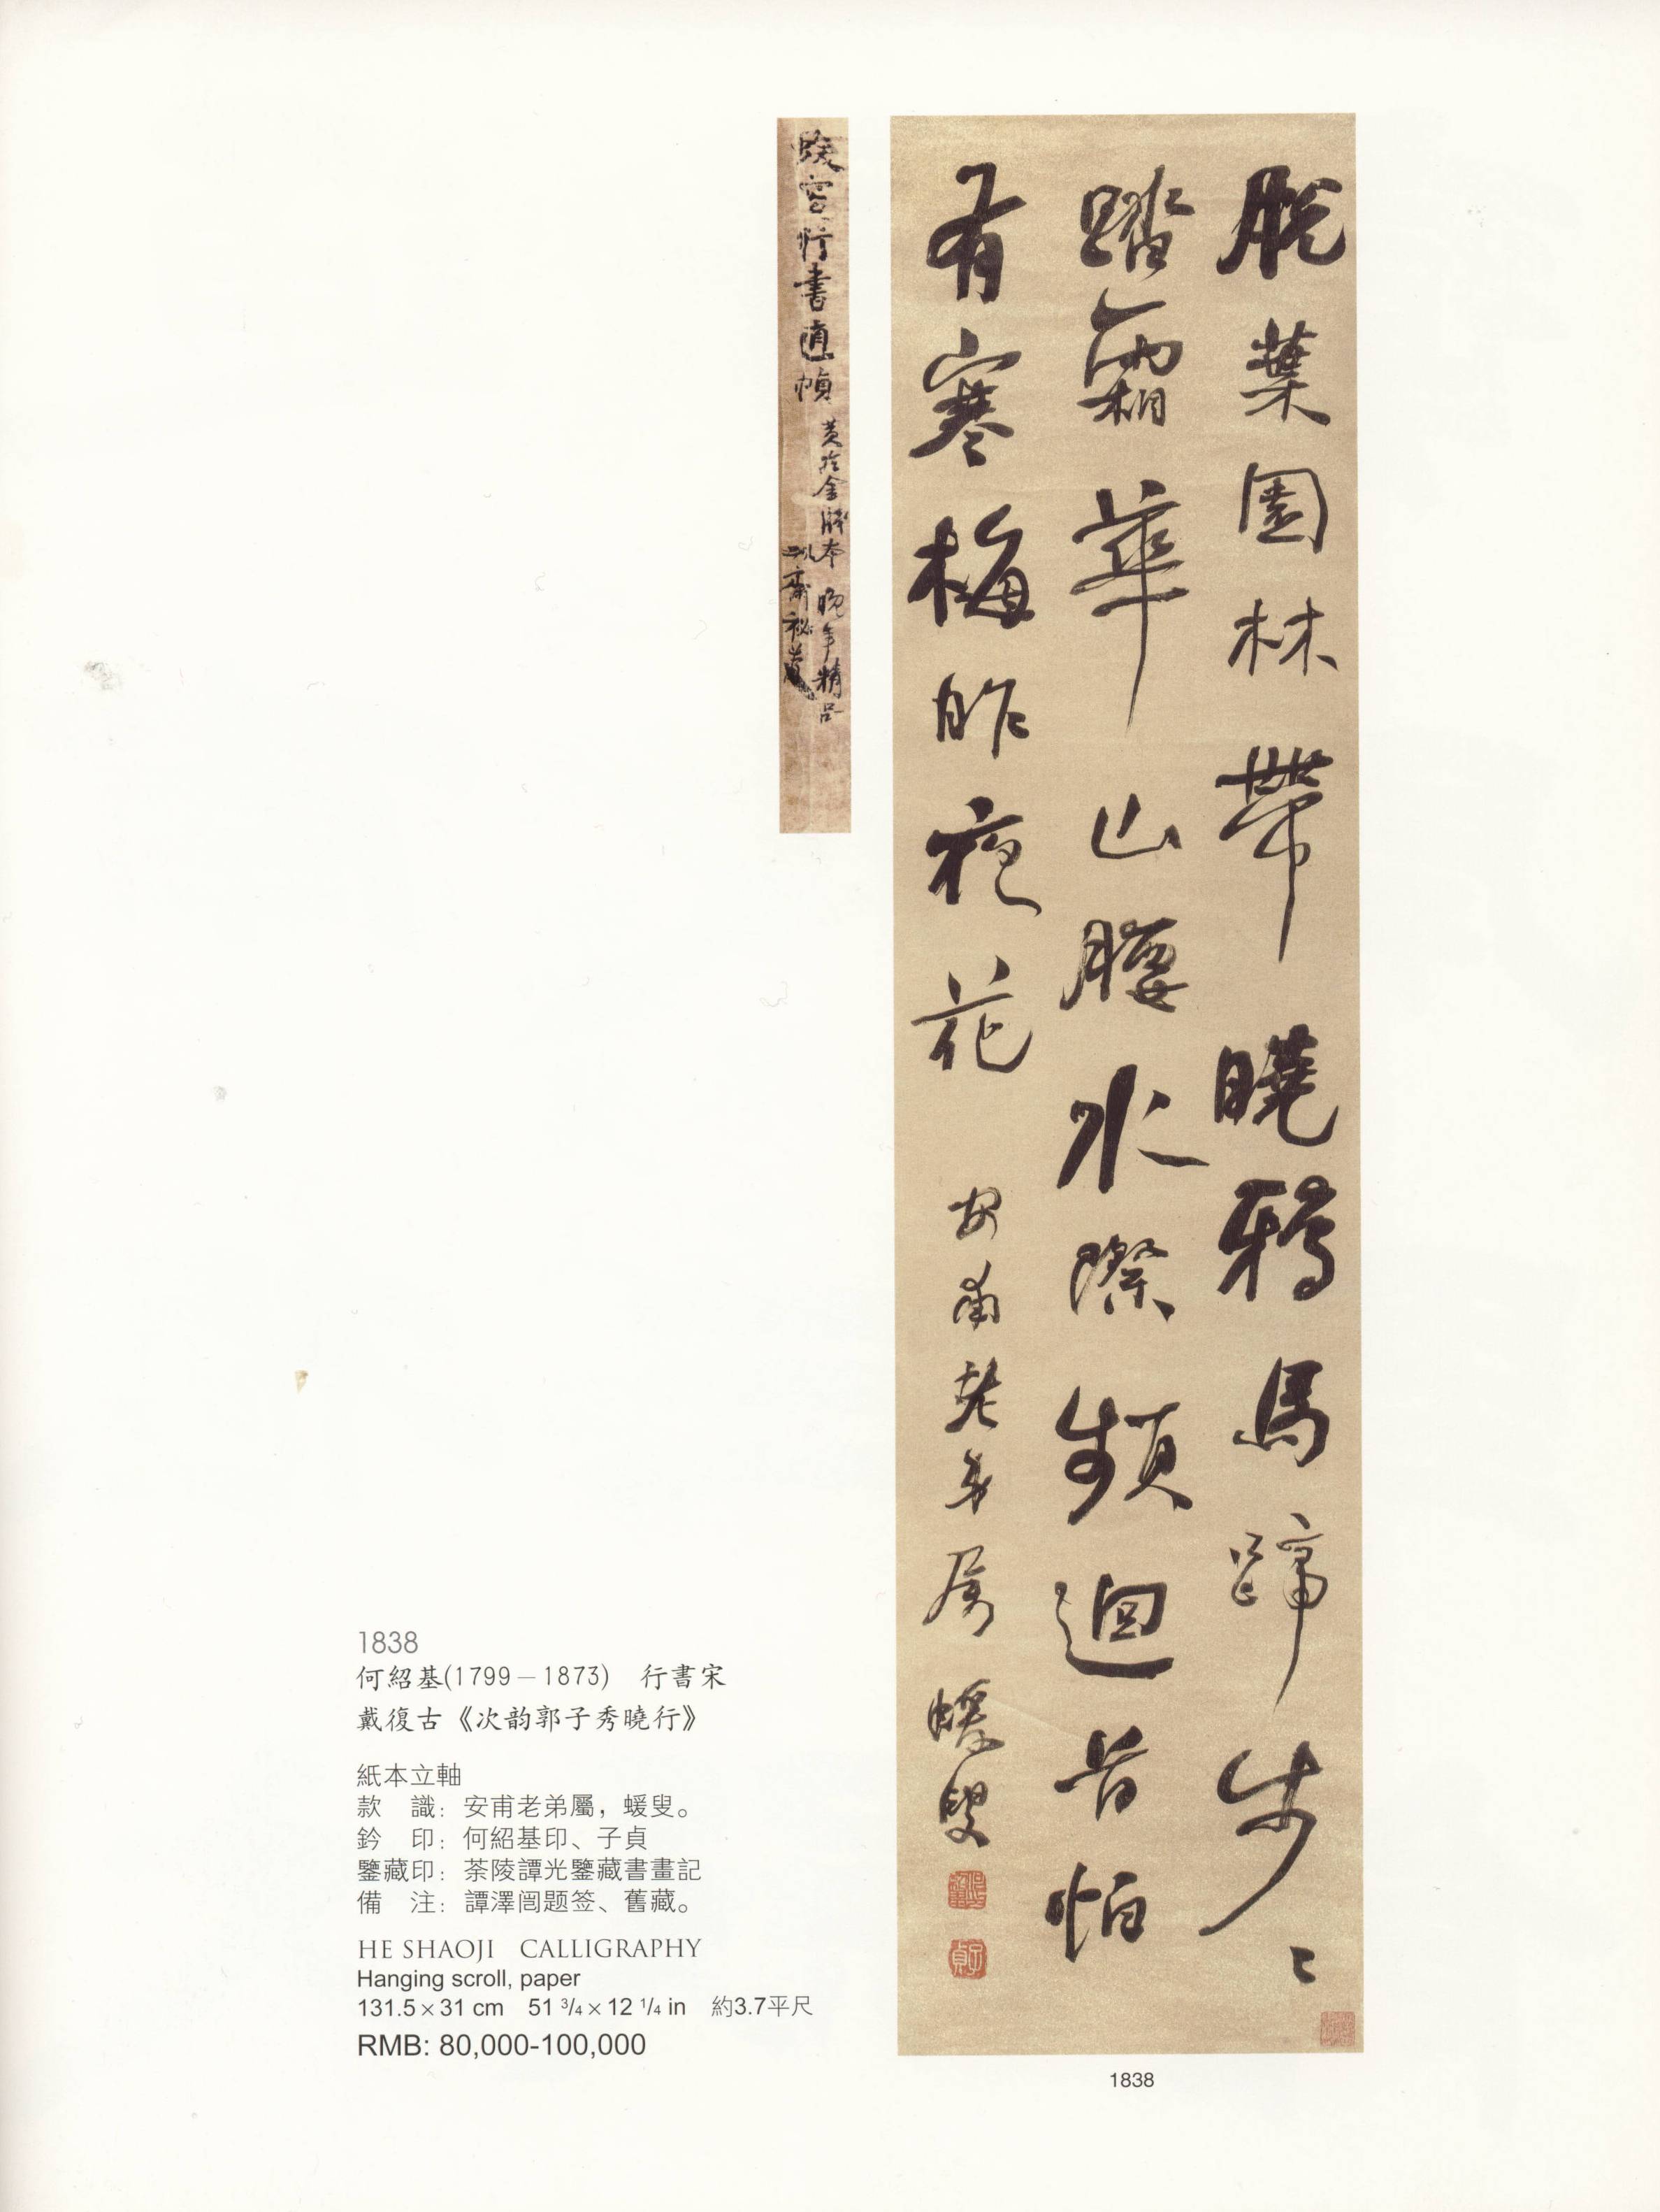 脫葉園林帶曉鴉馬蹄步〻
踏霜華山腰水際頻迴首怕
有寒梅昨夜花 安甫老弟屬 蝯叟
何紹基印
子貞
蝯叟行書直幀
黃冷金牋本 晚年精品
瓶齋祕藏
1838
何紹基(1799－1873) 行書宋
戴復古《次韵郭子秀曉行》
紙本立軸
款 識：安甫老弟屬，蝯叟。
鈐 印：何紹基印、子貞
鑒藏印：荼陵譚光鑒藏書畫記
備 注：譚澤闿题签、舊藏。
HE SHAOJI CALLIGRAPHY
Hanging scroll, paper
131.5×31 cm 51 3/4×12 1/4 in 約3.7平尺
RMB: 80,000-100,000
1838